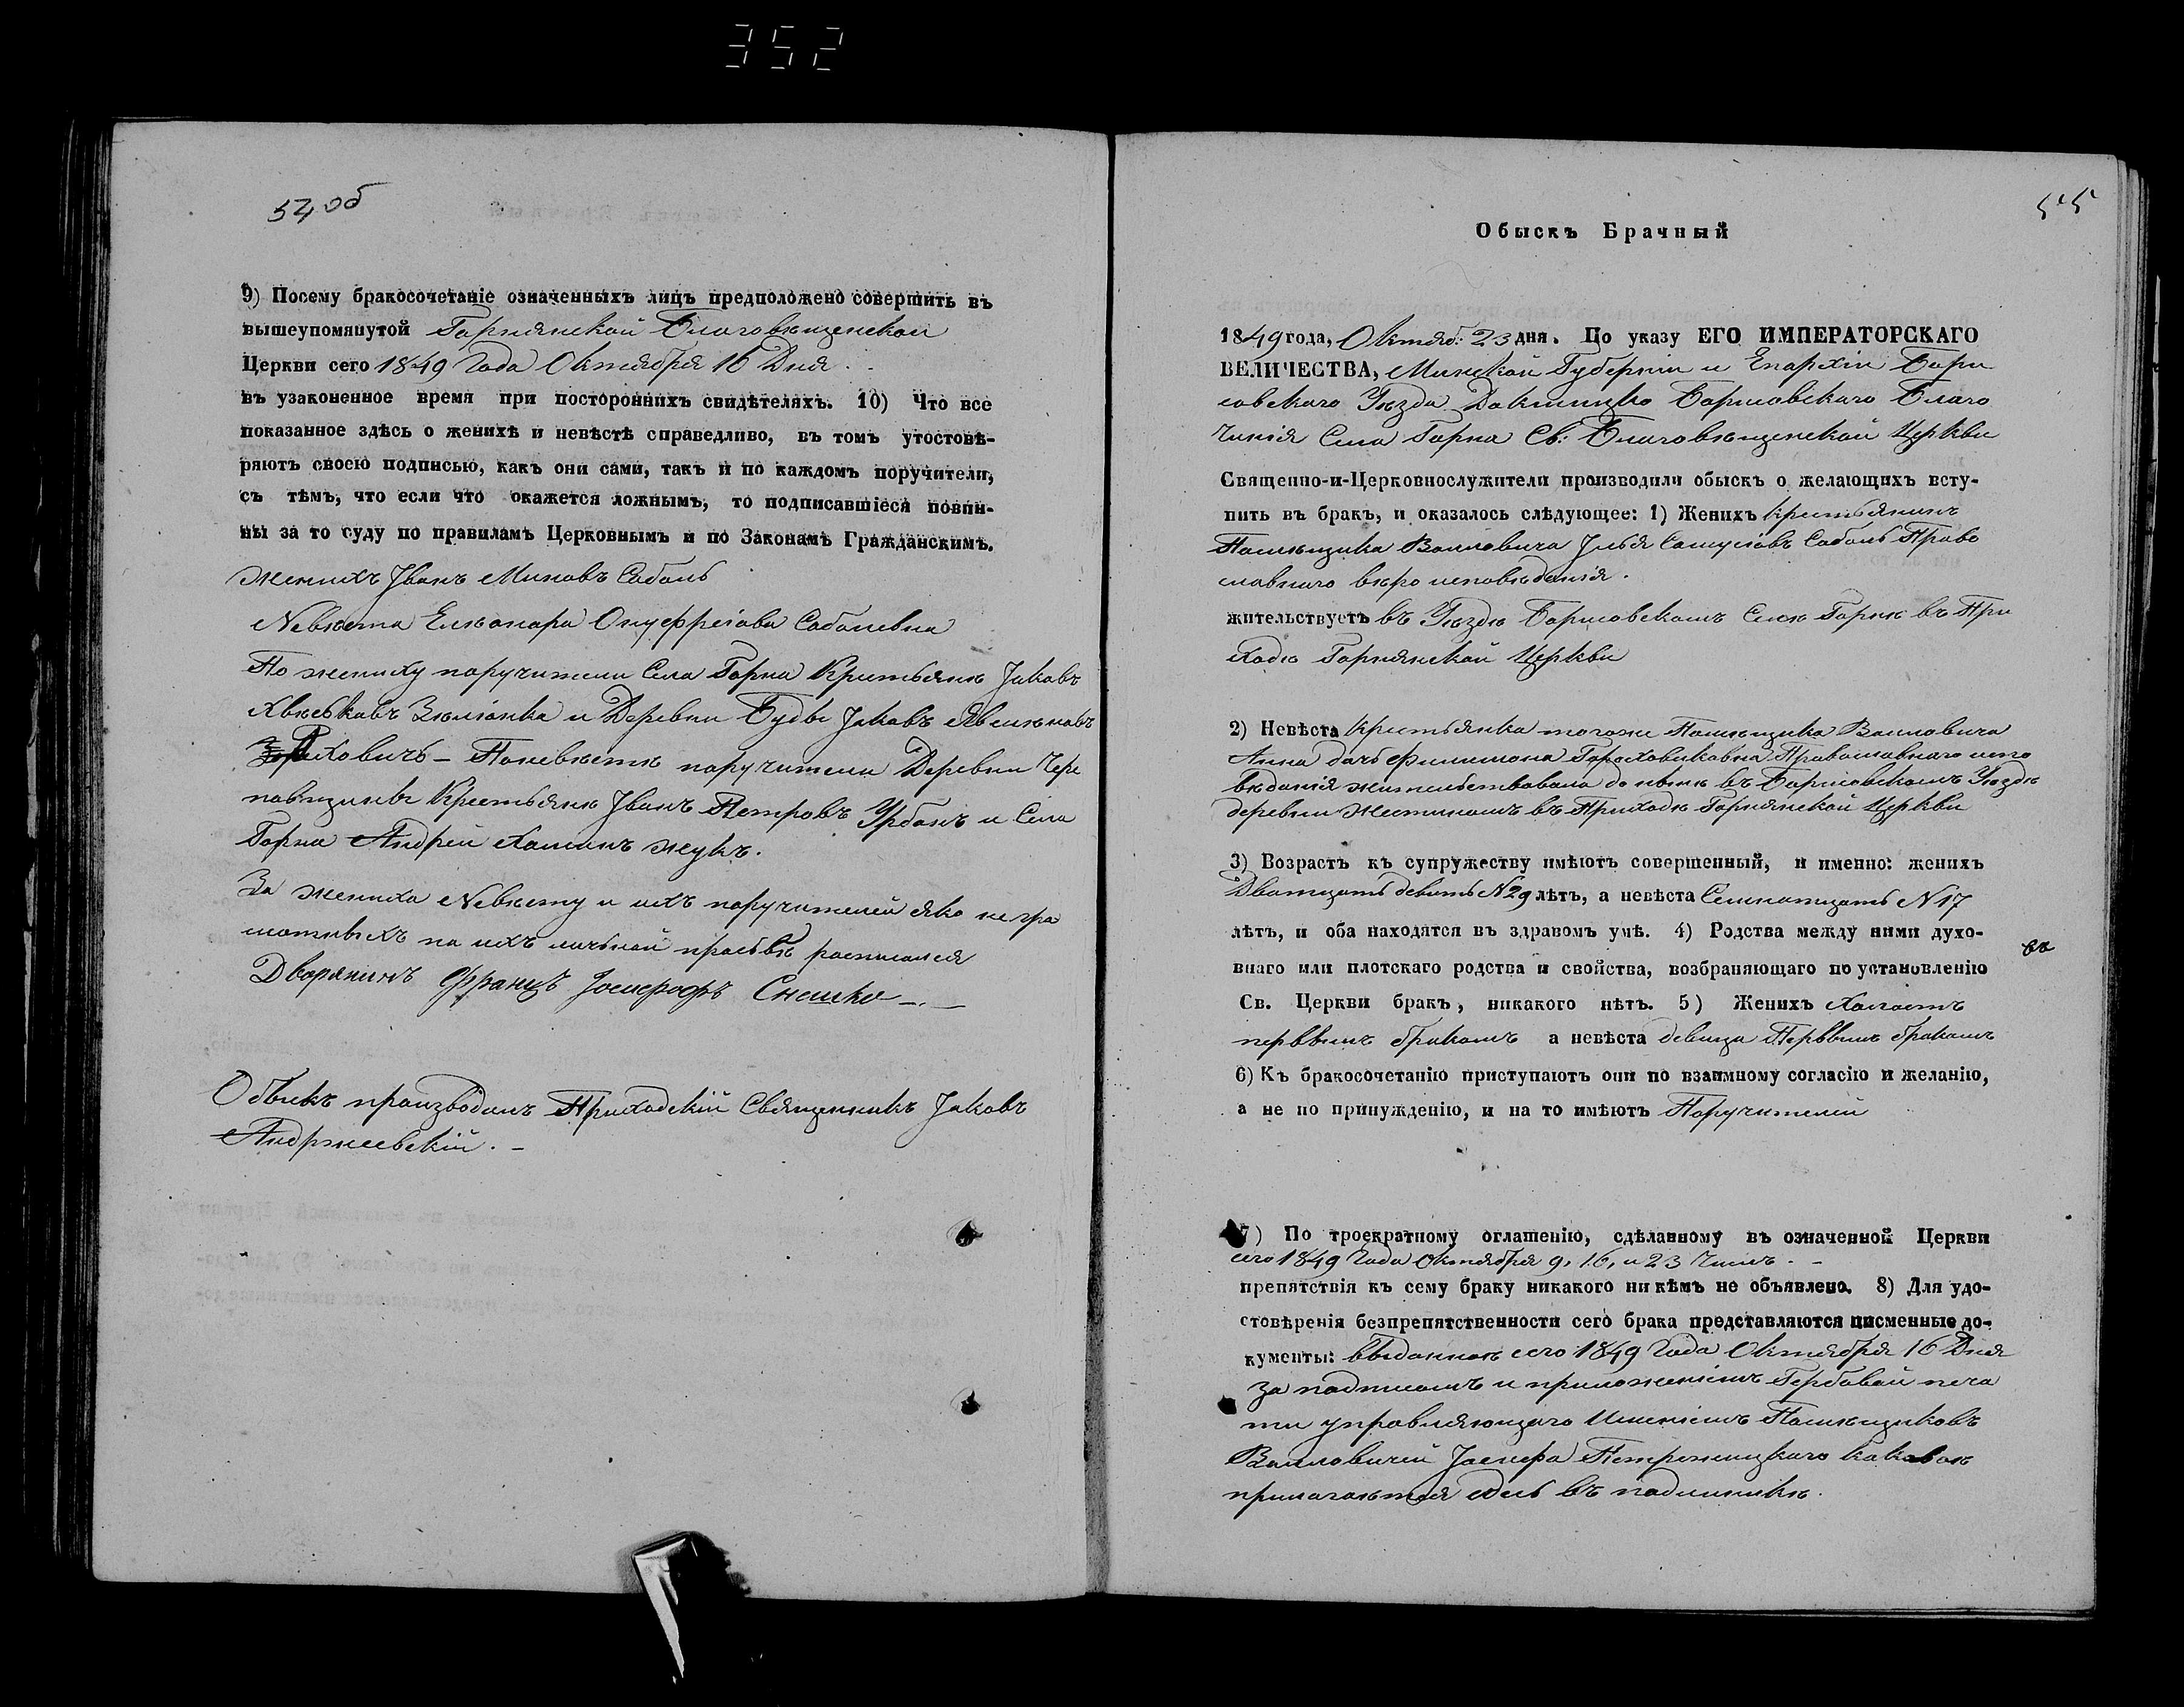 352
54 об
9) Посему бракосочетаніе означенныхъ лицъ предположено совершить въ
вышеупомянутой Горнянской Благовѣщенской
Церкви сего 1849 Года Октября 16 Дня.
въ узаконенное время при постороннихъ свидѣтеляхъ. 10) Что все
показанное здѣсь о женихѣ и невѣстѣ справедливо, въ томъ утостовѣ-
ряютъ своею подписью, какъ они сами, такъ и по каждомъ поручители,
съ тѣмъ, что если что окажется ложнымъ, то подписавшіеся повин-
ны за то суду по правиламъ Церковнымъ и по Законамъ Гражданскимъ.
Женихъ Јванъ Миновъ Соболь
Невѣста Елѣонора Онуфреіова Соболевна
По жениху поручители Села Горна Крестьянѣ Јаковъ
и Деревни Буды Јаковъ
Поневѣстѣ поручители Деревни Чере
повщины Крестьянѣ Јванъ Петровъ Урбанъ и Села
Горна Андрей Хоминъ Жукъ.
За жениха Невѣсту и ихъ поручителей яко негра
мотныхъ по ихъ личной просьбѣ росписался
Дворянинъ Францъ Јосифофъ
Обыскъ производилъ Приходскій Священникъ Јаковъ
Андржеевскій. –
55
Обыскъ Брачный
1849 года, Октяб: 23 дня. По указу ЕГО ИМПЕРАТОРСКАГО
ВЕЛИЧЕСТВА, Минской Губерніи и Епархіи Бори
совскаго Уѣзда Докшицко Борисовскаго Благо
чинія Села Горна Св: Благовѣщенской Церкви
Священно-и-Церковнослужители производили обыскъ о желающихъ всту-
пить въ бракъ, и оказалось слѣдующее: 1) Женихъ Крестьянинъ
Помѣщика Воловича Јлья Самуіовъ Соболь Право
славнаго вѣро исповѣданія.
жительствуетъ въ Уѣздѣ Борисовскомъ Селѣ Горнѣ въ При
ходѣ Горнянской Церкви
2) Невѣста Крестьянка тогоже Помѣщика Воловича
Анна дочь Филимона Гороховиковна Православнаго испо
вѣданія жительствовала до нынѣ въ Борисовскомъ Уѣздѣ
деревни въ Приходѣ Горнянской Церкви
3) Возрастъ къ супружеству имѣютъ совершенный, и именно: женихъ
Дватцать девять N 29 лѣтъ, а невѣста Семнатцать N 17
лѣтъ, и оба находятся въ здравомъ умѣ. 4) Родства между ними духо-
внаго или плотскаго родства и свойства, возбраняющаго по установленію
Св. Церкви бракъ, никакого нѣтъ. 5) Женихъ Холостъ
первымъ бракомъ а невѣста девица Первымъ бракомъ
6) Къ бракосочетанію приступаютъ они по взаимному согласію и желанію,
а не по принужденію, и на то имѣютъ Поручителей
7) По троекратному оглашенію, сдѣланному въ означенной Церкви
сего 1849 Года Октября 9, 16, и 23 Числъ. –
препятствія къ сему браку никакого ни кѣмъ не объявлено. 8) Для удо-
стовѣренія безпрепятственности сего брака представляются писменные до-
кументы: выданноѣ сего 1849 Года Октября 16 Дня
за подписомъ и приложеніемъ Гербовой печа
ти управляющаго Имѣніемъ Помѣщиковъ
Воловичей Јосифа каковоѣ
прилогаѣтся сдесь въ подлинникѣ.